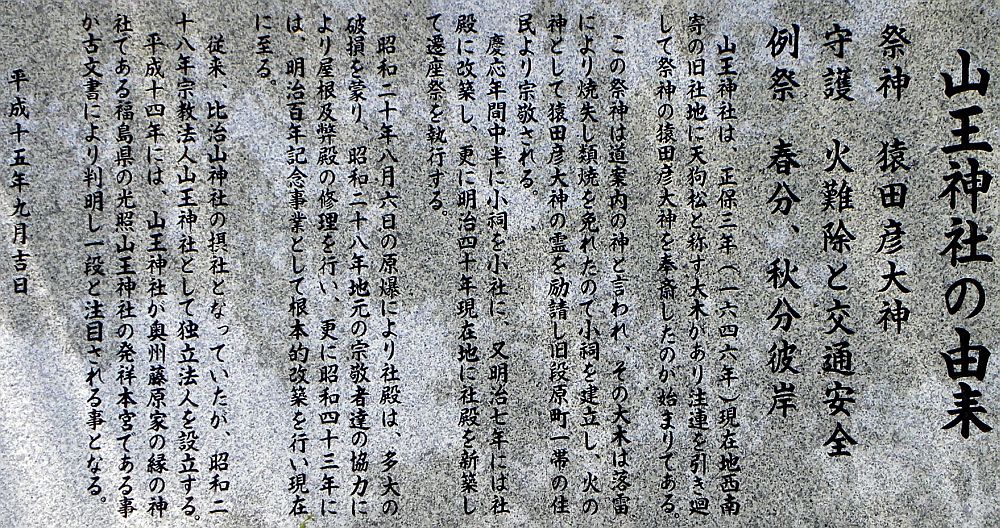 山王神社の由来
祭神　猿田彦大神
守護　火難除と交通安全
例祭　春分、秋分彼岸
山王神社は、正保三年（一六四六年）現在地西南
寄の旧社地に天狗松と称す大木があり注連を引き廻
して祭神の猿田彦大神を奉斎したのが始まりである。
この祭神は道案内の神と言われ、その大木は落雷
により焼失し類焼を免れたので小祠を建立し、火の
神として猿田彦大神の霊を勧請し旧段原町一帯の住
民より宗敬される。
慶応年間中半に小祠を小社に、又明治七年には社
殿に改築し、更に明治四十年現在地に社殿を新築し
て遷座祭を執行する。
昭和二十年八月六日の原爆により社殿は、多大の
破損を蒙り、昭和二十八年地元の宗敬者達の協力に
より屋根及弊殿の修理を行い、更に昭和四十三年に
は、明治百年記念事業として根本的改築を行い現在
に至る。
従来、比治山神社の摂社となっていたが、昭和二
十八年宗教法人山王神社として独立法人を設立する。
平成十四年には、山王神社が奥州藤原家の縁の神
社である福島県の光照山王神社の発祥本宮である事
が古文書により判明し一段と注目される事となる。
平成十五年九月吉日